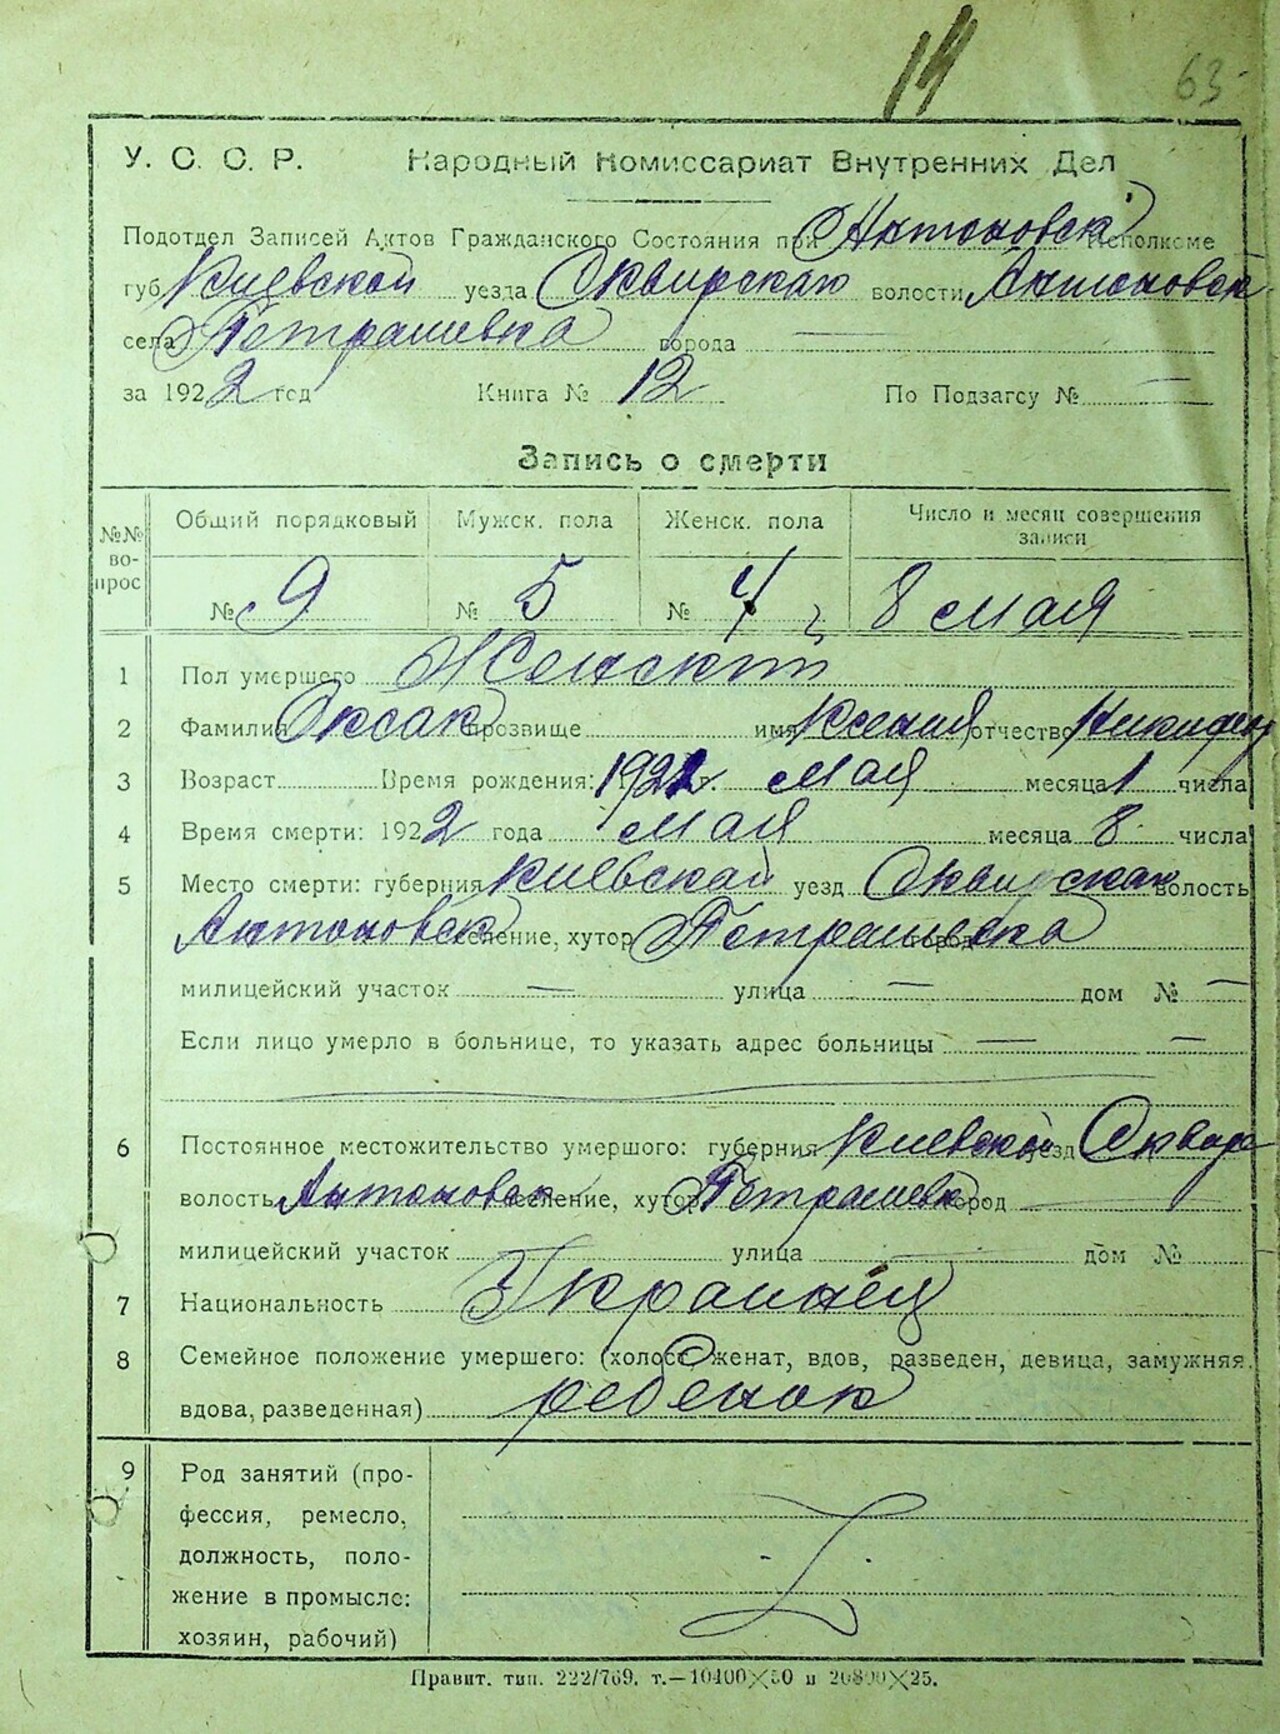 14 63
У. С. С. Р. Народный Комиссариат Внутренних Дел
Подотдел Записей Актов Гражданского Состояния при Антоновск Исполкоме
губ Киевской уезда Сквирская волости Антоновск
села Петрашевка города —
за 1922 год Книга № 12 По Подзагсу № —
Запись о смерти
№№ во- прос Общий порядковый Мужск. пола Женск. пола Число и месяц совершения записи
№ 9 № 5 № 4 8 мая
1 Пол умершего Женский
2 Фамилия Оксак прозвище имя Ксения отчество Никифор
3 Возраст Время рождения: 1922 г. мая месяца 1 числа
4 Время смерти: 1922 года мая месяца 8 числа
5 Место смерти: губерния Киевской уезд Сквирская волость
Антоновск селение, хутор Петрашевка город
милицейский участок — улица — дом № —
Если лицо умерло в больнице, то указать адрес больницы — —
6 Постоянное местожительство умершего: губерния Киевской уезд Сквир
волость Антоновск селение, хутор Петрашевк город —
милицейский участок — улица — дом №
7 Национальность Украинец
8 Семейное положение умершего: (холост, женат, вдов, разведен, девица, замужняя.
вдова, разведенная) ребенок
9 Род занятий (про-
фессия, ремесло,
должность, поло-
жение в промысле:
хозяин, рабочий)
Правит. тип. 222/769. т.—10400×50 и 20800×25.